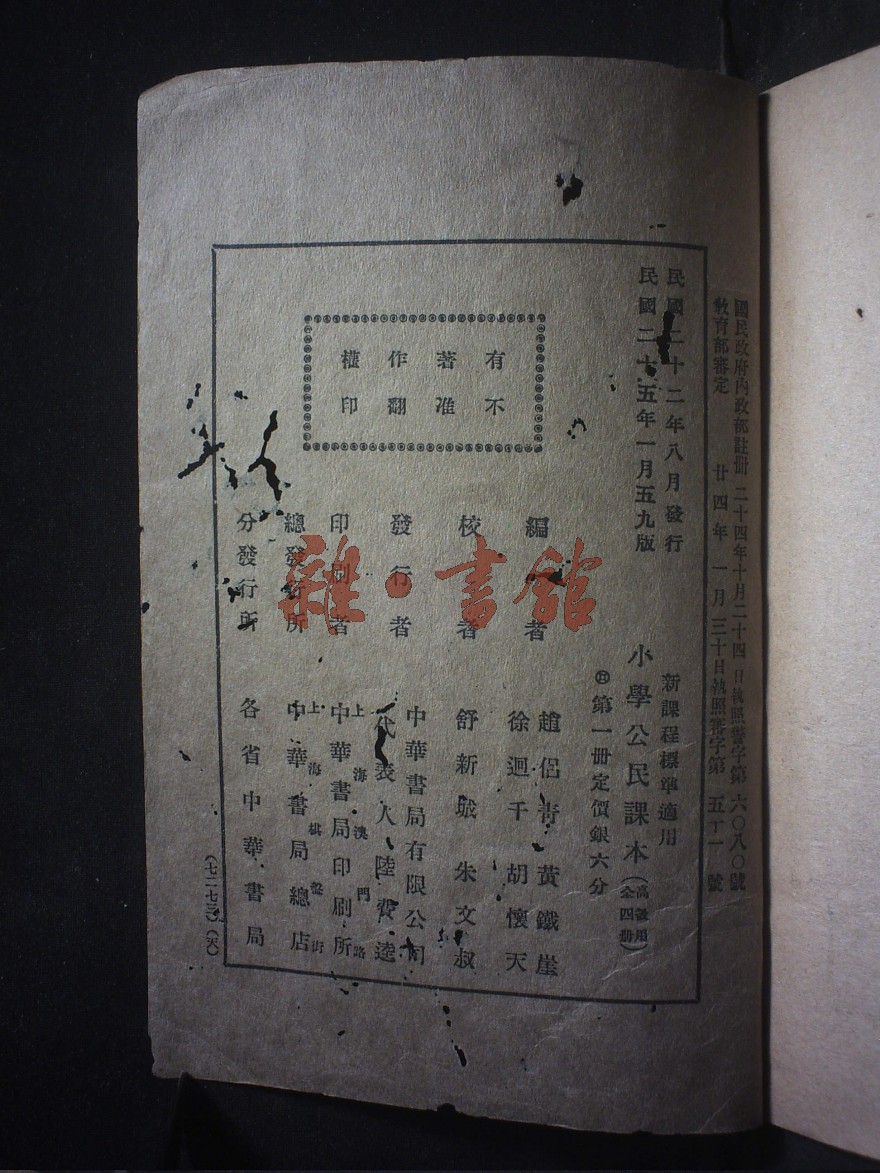 國民政府內政部註冊 二十四年十月二十四日執照警字第 六〇八〇號
教育部審定 廿四年 一月三十日執照審字第 五十一號
民國二十二年八月發行
民國二十五年一月五九版
新課程標準適用
小學公民課本(高級用 全四冊)
第一冊定價銀六分
有著作權
不准翻印
編 者
趙侶青 黃鐵崖
徐迴千 胡懷天
校 者
舒新城 朱文叔
發行者
中華書局有限公司
代表人 陸費逵
印刷者
上海澳門路
中華書局印刷所
總發行所
上海棋盤街
中華書局總店
分發行所
各省中華書局
(七二七三)
雜·書館